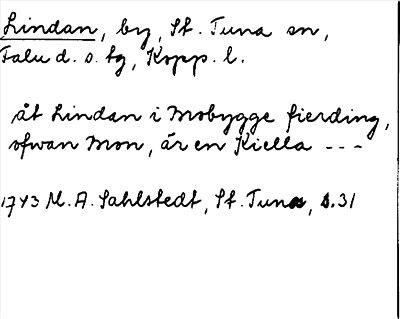 Lindan, by, St. Tuna sn,
Falu d. s. tg, Kopp. l.
åt Lindan i Mobygge fierding,
ofwan Mon, är en Kiella ---
1743 M. A. Sahlstedt, St. Tuna, s. 31